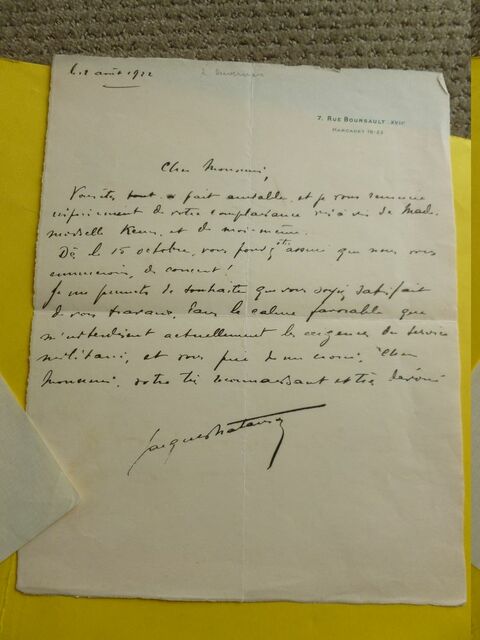 le 2 août 1922
7. RUE BOURSAULT. XVIIe
MARCADET 16-22
Cher Monsieur,
Vous êtes tout à fait aimable, et je vous remercie
infiniment de votre complaisance vis à vis de Made-
moiselle et de moi-même.
Dès le 15 octobre, vous pouvez être assuré que nous vous
de concert!
Je me permets de souhaiter que vous soyez satisfait
de vos travaux, dans le calme favorable que
m'interdisent actuellement les exigences du service
militaire, et vous prie de me croire, Cher
Monsieur, votre très reconnaissant et très dévoué
Jacques